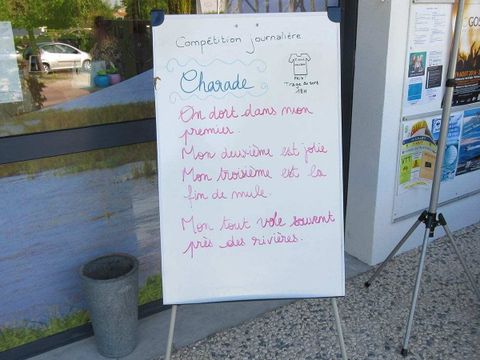 Compétition journalière
Charade
Prix
Tirage au sort
18H
On dort dans mon
premier.
Mon deuxième est jolie
Mon troisième est la
fin de mule.
Mon tout vole souvent
près des rivières.